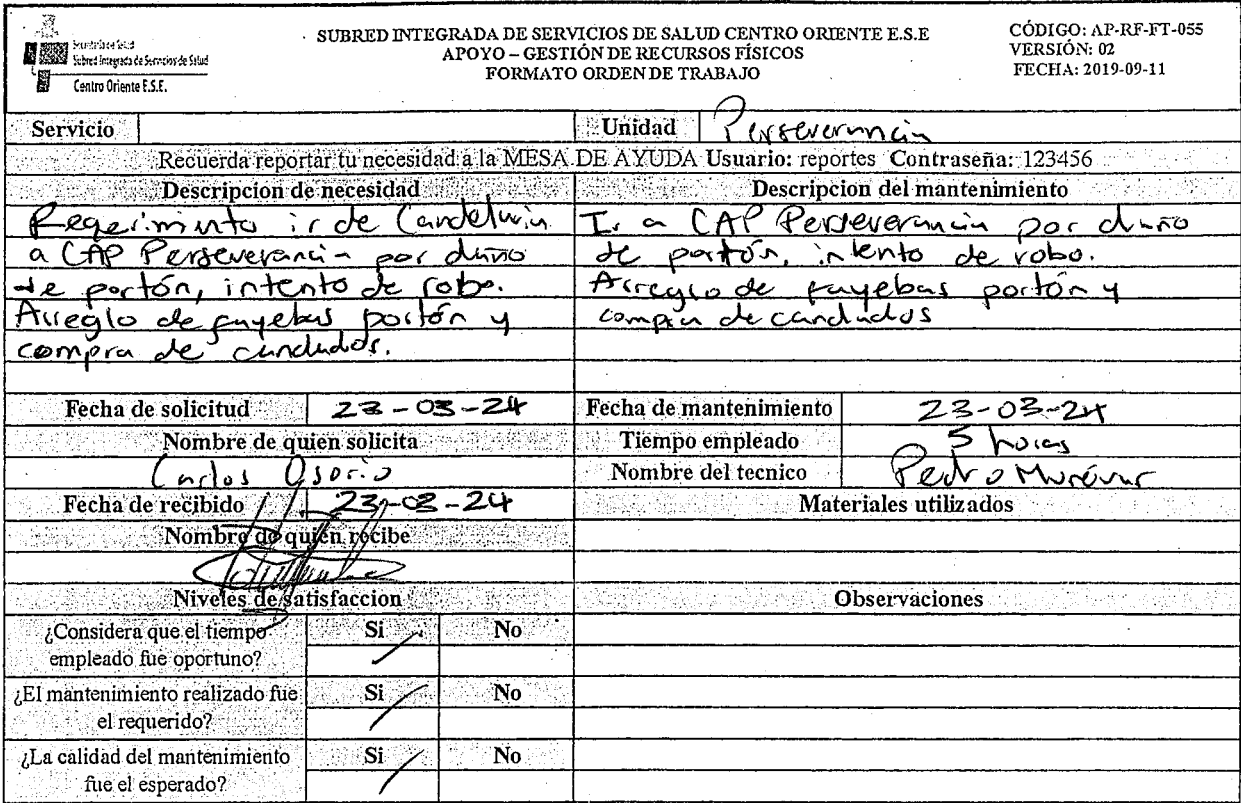 Secretaría de Salud
Subred Integrada de Servicios de Salud
Centro Oriente E.S.E.
SUBRED INTEGRADA DE SERVICIOS DE SALUD CENTRO ORIENTE E.S.E
APOYO – GESTIÓN DE RECURSOS FÍSICOS
FORMATO ORDEN DE TRABAJO
CÓDIGO: AP-RF-FT-055
VERSIÓN: 02
FECHA: 2019-09-11
Servicio
Unidad Perseverancia
Recuerda reportar tu necesidad a la MESA DE AYUDA Usuario: reportes Contraseña: 123456
Descripcion de necesidad
Reqeriminto ir de Candelaria
a CAP Perseverancia por daño
de portón, intento de robo.
Arreglo de fayebas portón y
compra de candados.
Descripcion del mantenimiento
Ir a CAP Perseverancia por daño
de portón, intento de robo.
Arreglo de fayebas portón y
compra de candados
Fecha de solicitud 23-03-24
Fecha de mantenimiento 23-03-24
Nombre de quien solicita
Carlos Osorio
Tiempo empleado 5 horas
Nombre del tecnico Pedro
Fecha de recibido 23-03-24
Materiales utilizados
Nombre de quien recibe
Niveles de satisfaccion
Observaciones
¿Considera que el tiempo
empleado fue oportuno?
Si No
¿El mantenimiento realizado fue
el requerido?
Si No
¿La calidad del mantenimiento
fue el esperado?
Si No